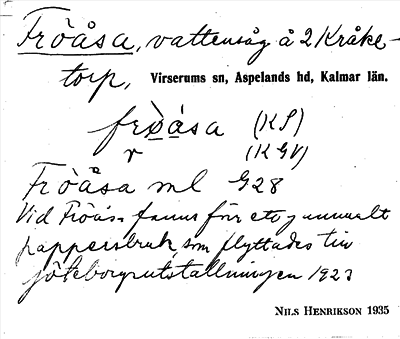 Fröåsa, vattensåg å 2 Kråke-
torp, Virserums sn, Aspelands hd, Kalmar län.
frö̀ása (KP)
r (KGV)
Fröåsa ml G28
Vid Fröås- fanns förr ett gammalt
pappersbruk, som flyttades till
göteborgsutställningen 1923
NILS HENRIKSON 1935